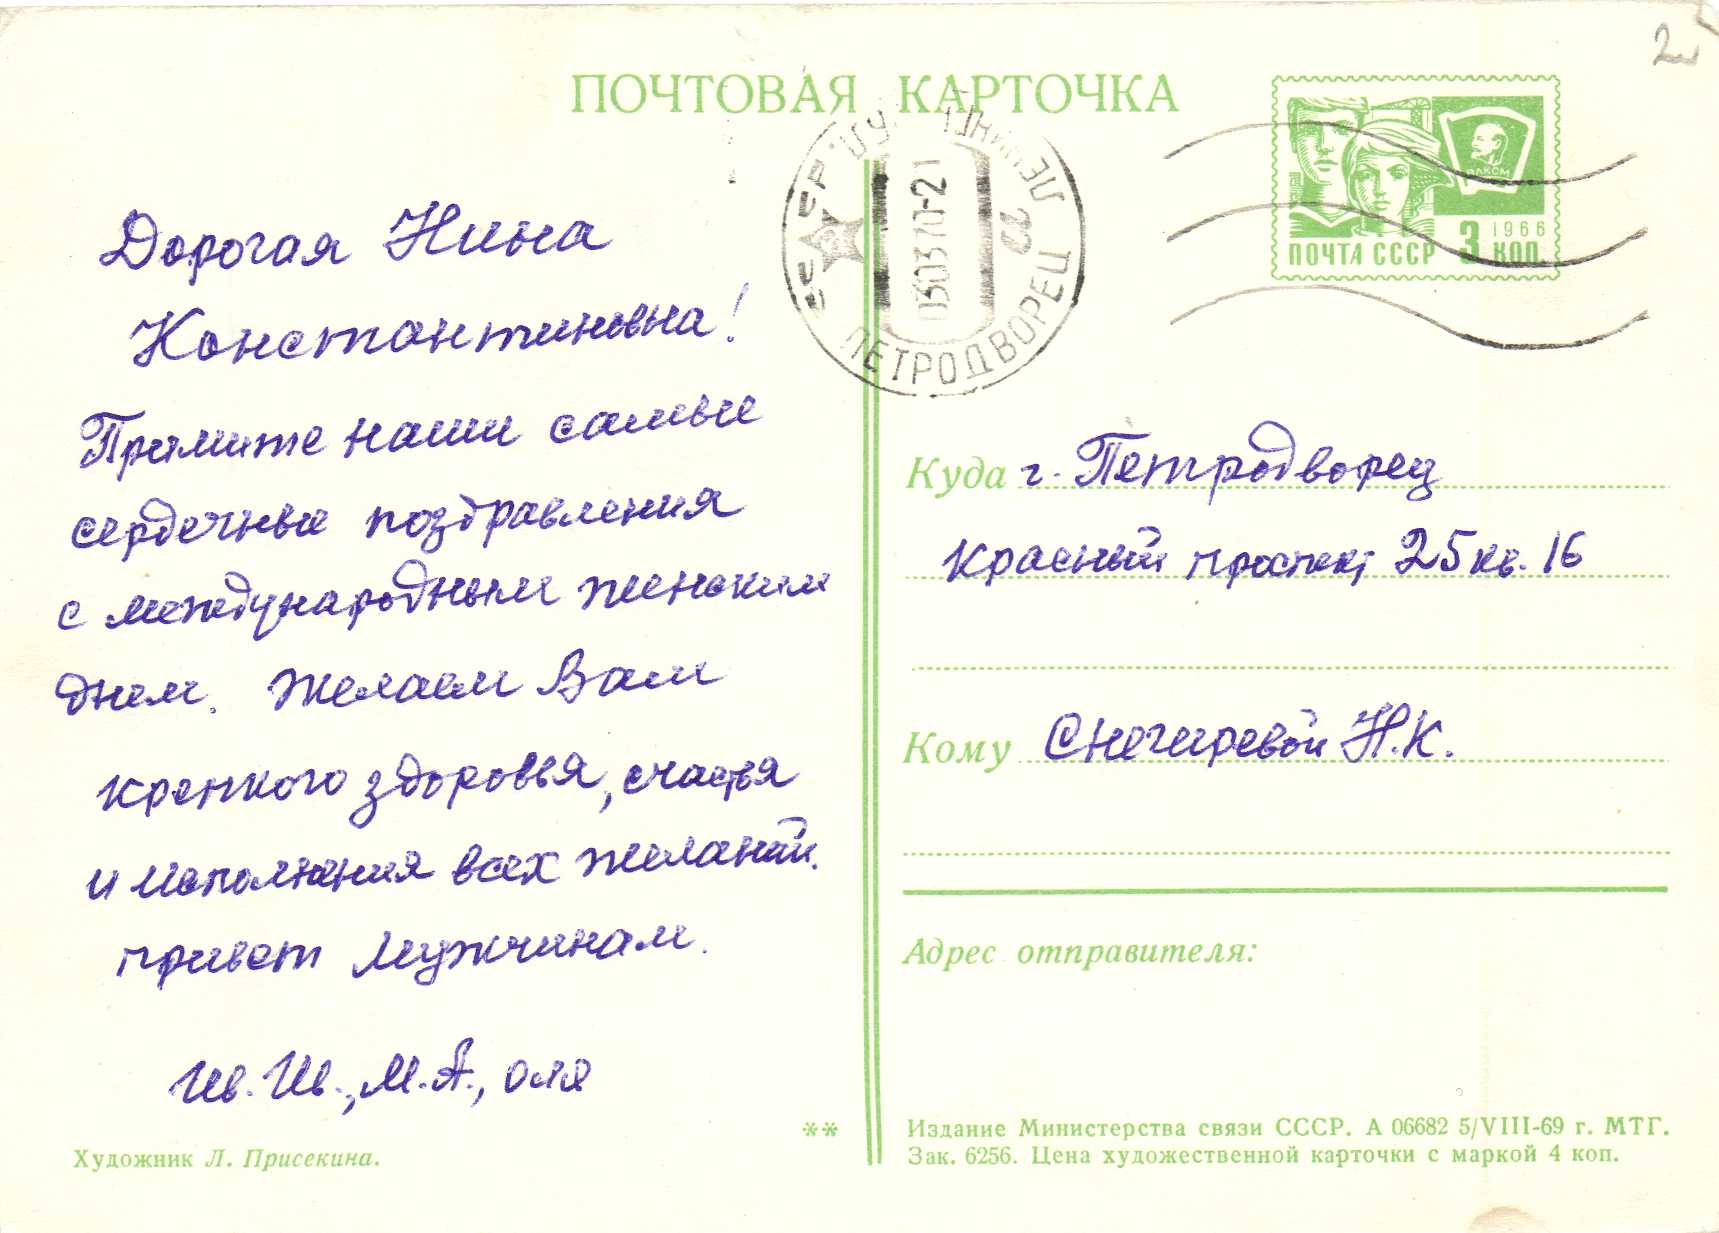 2
ПОЧТОВАЯ КАРТОЧКА
ВЛКСМ
1966
ПОЧТА СССР 3 КОП.
СССР
030370-21
22
ПЕТРОДВОРЕЦ
Дорогая Нина
Константиновна!
Примите наши самые
сердечные поздравления
с международным женским
днем. Желаем Вам
крепкого здоровья, счастья
и исполнения всех желаний.
привет мужчинам.
Ив. Ив., М.А., Оля
Художник Л. Присекина.
**
Куда г. Петродворец
Красный проспект 25 кв. 16
Кому Снегиревой Н.К.
Адрес отправителя:
Издание Министерства связи СССР. А 06682 5/VIII-69 г. МТГ.
Зак. 6256. Цена художественной карточки с маркой 4 коп.